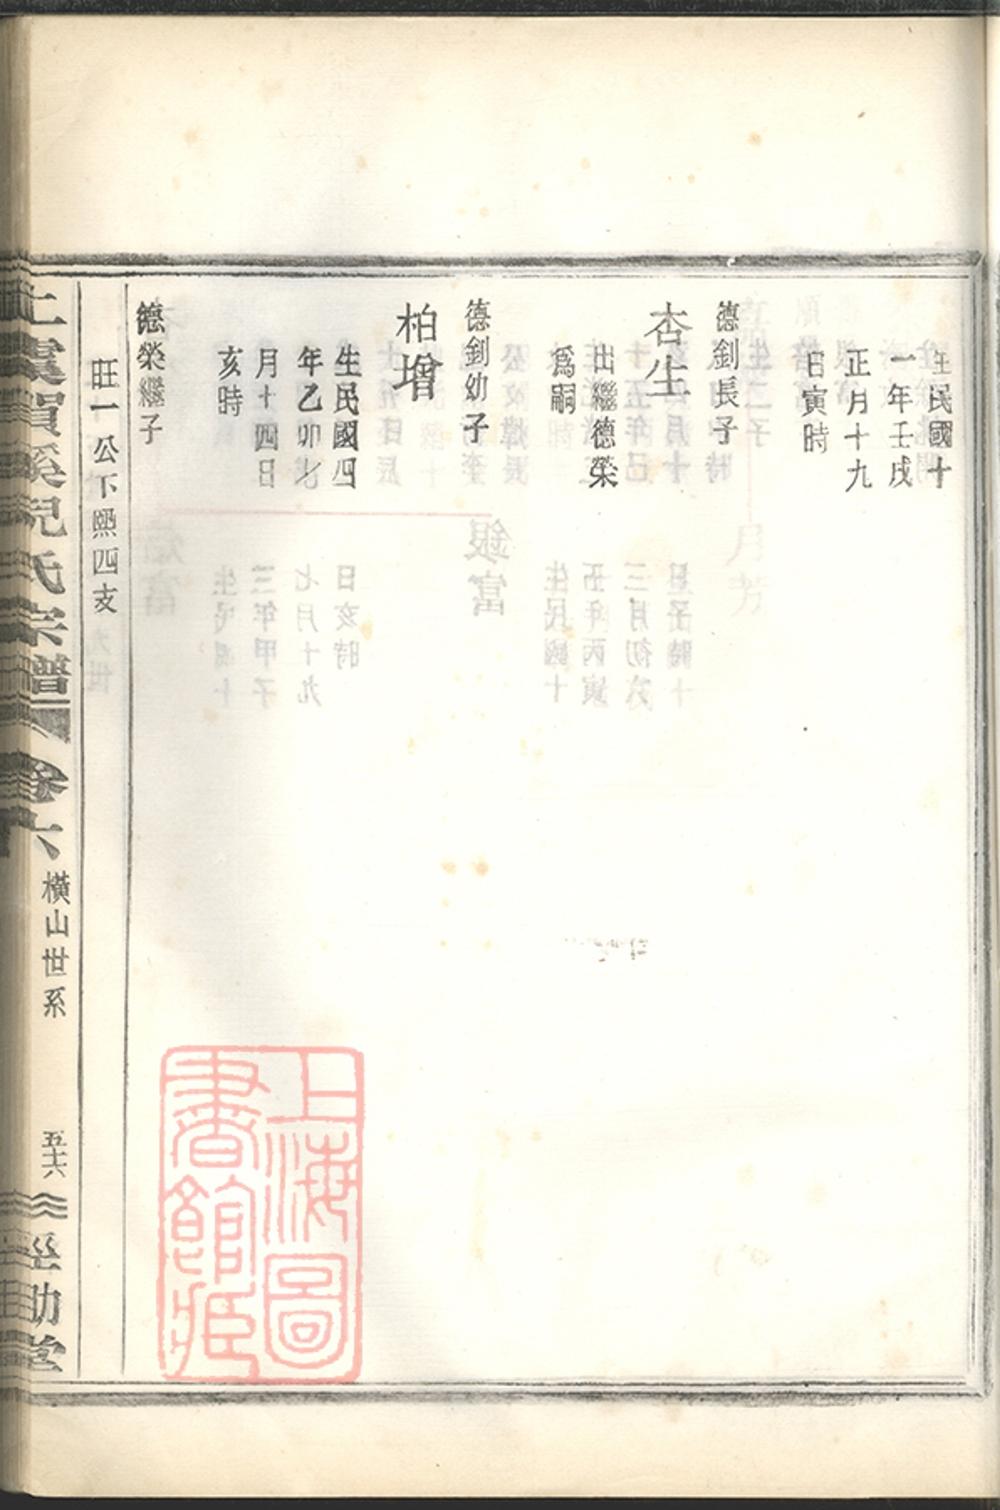 生民國十
一年壬戌
正月十九
日寅時
德釗長子
杏生
出繼德榮
爲嗣
德釗幼子
柏璔
生民國四
年乙卯七
月十四日
亥時
德榮繼子
旺一公下熙四支
上虞賀溪倪氏宗譜
卷六
橫山世系
五十六
巠助堂
上海圖
書館藏